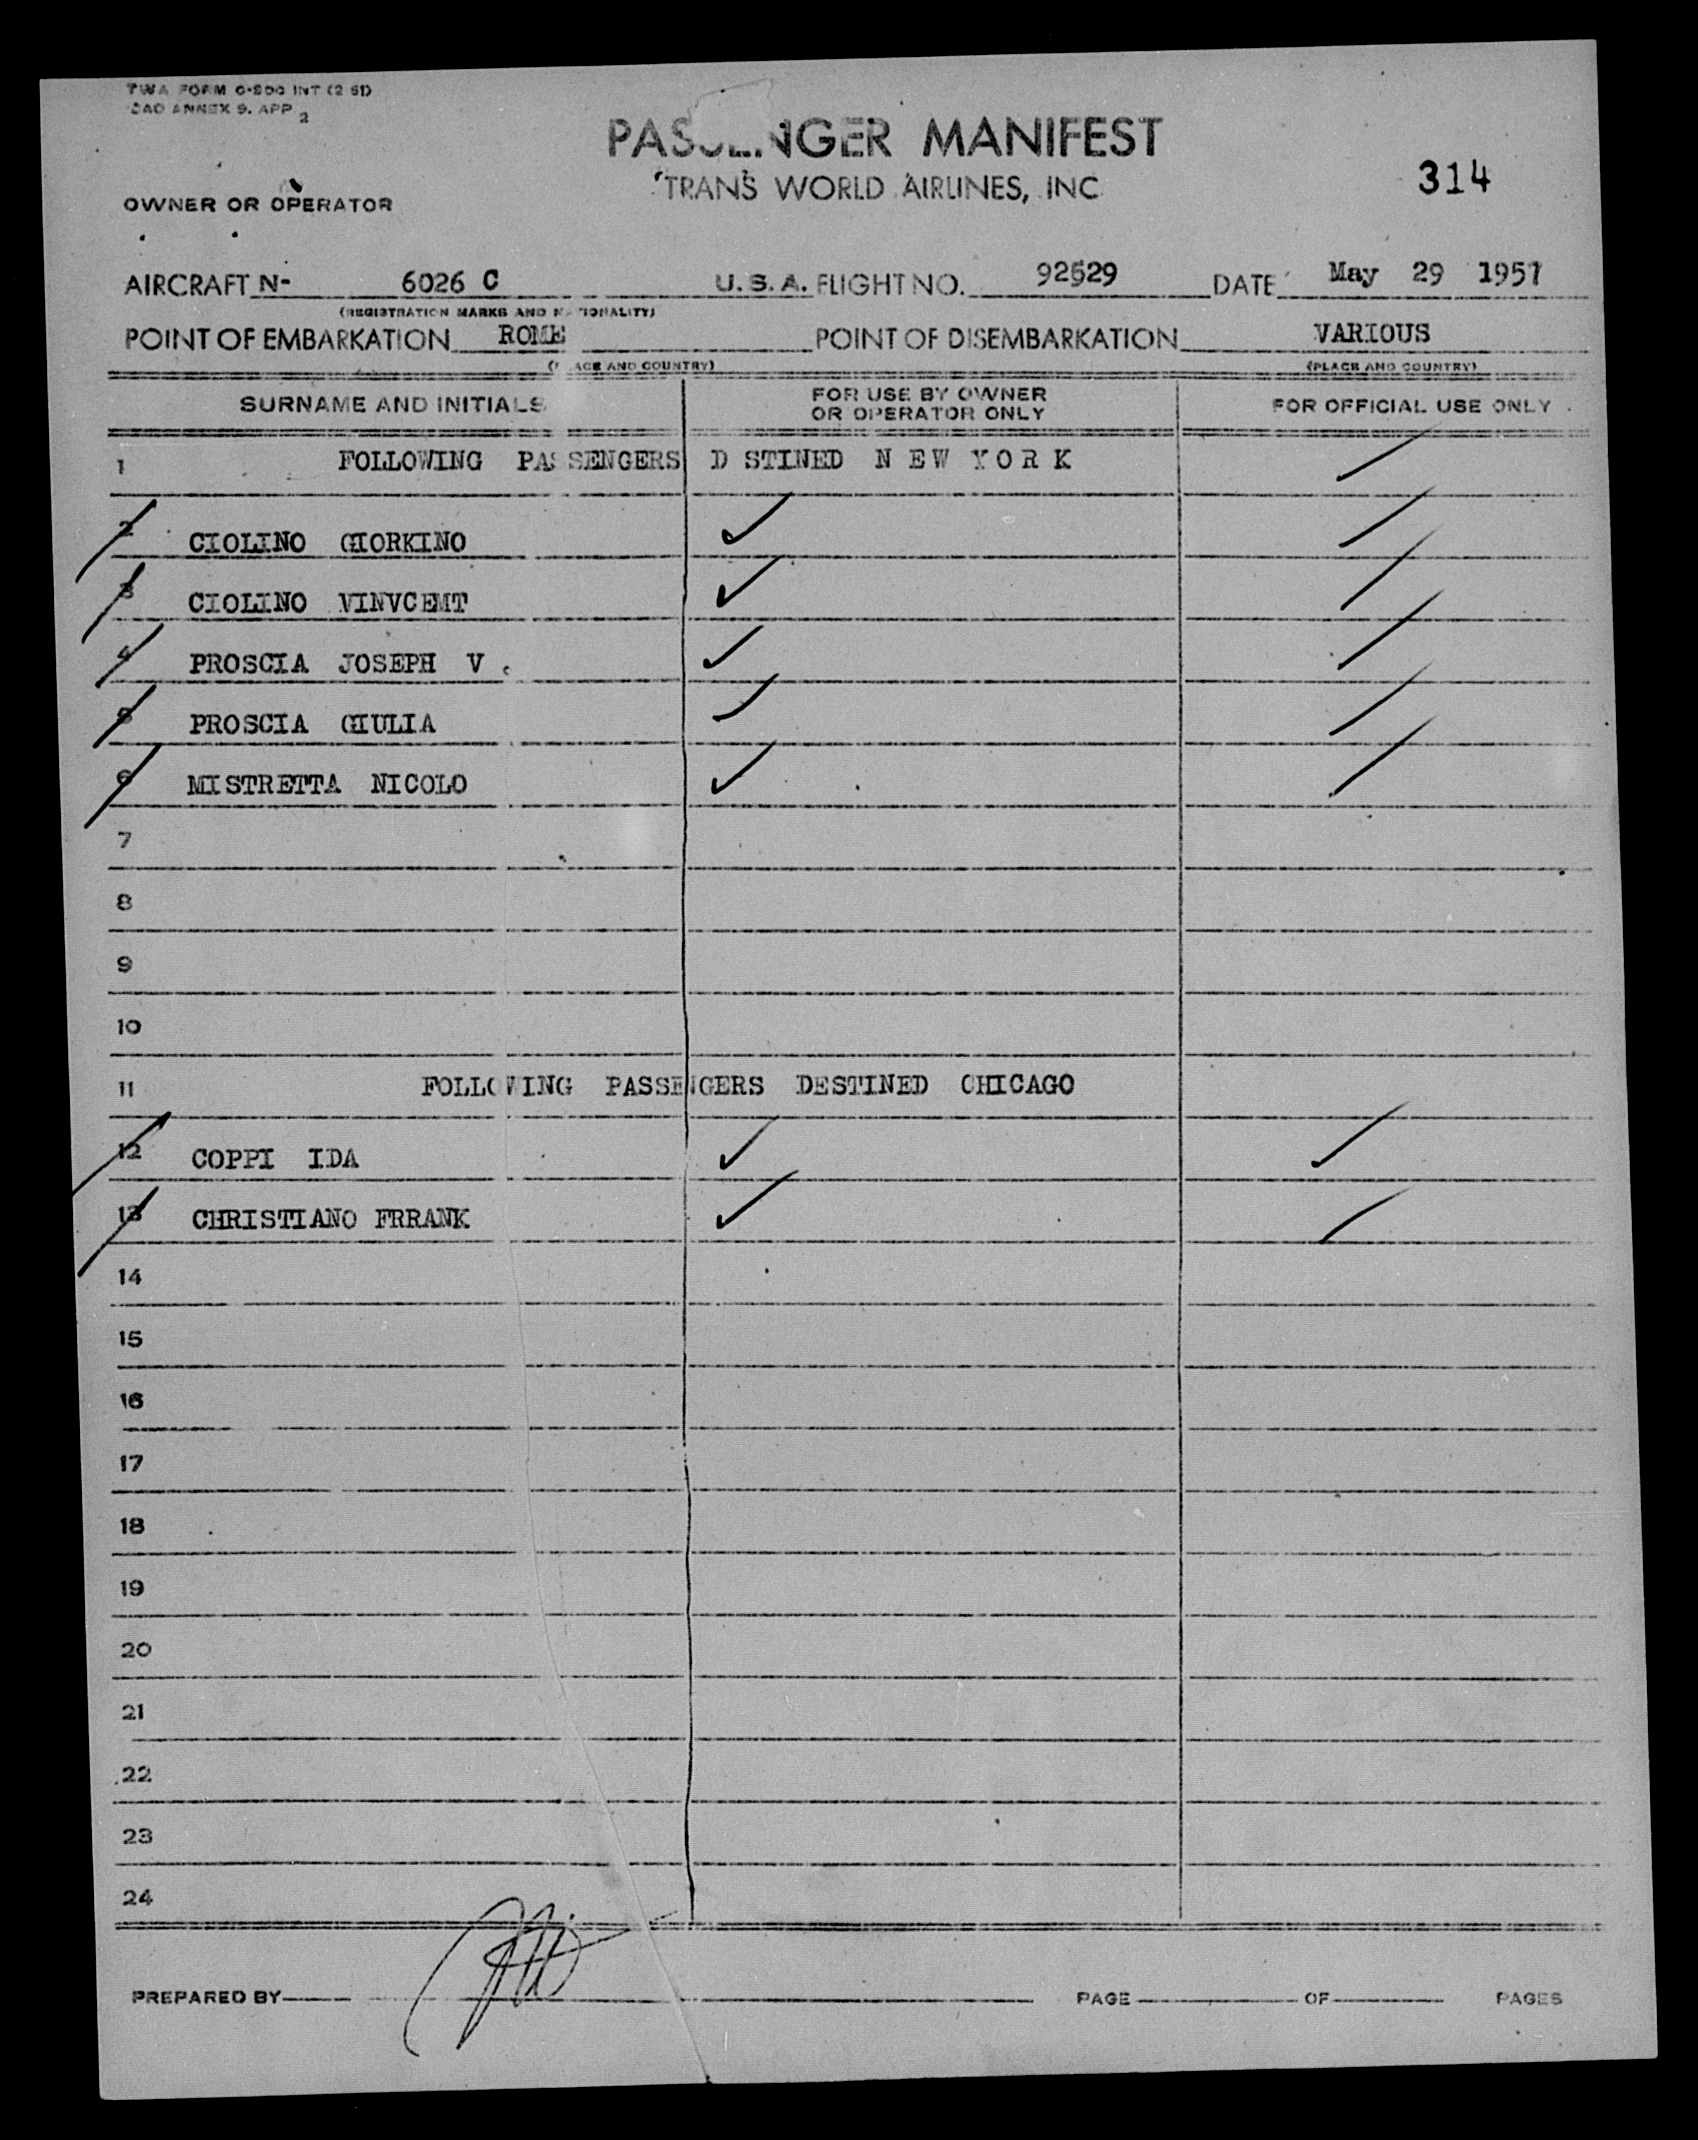 TWA FORM INT (2 51)
ANNEX 9. APP 2
PASSENGER MANIFEST
314
TRANS WORLD AIRLINES, INC
OWNER OR OPERATOR
AIRCRAFT N- 6026 C U. S. A. FLIGHT NO. 92529 DATE May 29 1951
(REGISTRATION MARKS AND NATIONALITY)
POINT OF EMBARKATION ROME POINT OF DISEMBARKATION VARIOUS
(PLACE AND COUNTRY) (PLACE AND COUNTRY)
SURNAME AND INITIALS FOR USE BY OWNER OR OPERATOR ONLY FOR OFFICIAL USE ONLY
1 FOLLOWING PASSENGERS D STINED N E W Y O R K
2 CIOLINO GIORKINO
3 CIOLINO VINVCEMT
4 PROSCIA JOSEPH V.
5 PROSCIA GIULIA
6 MISTRETTA NICOLO
7
8
9
10
11 FOLLOWING PASSENGERS DESTINED CHICAGO
12 COPPI IDA
13 CHRISTIANO FRRANK
14
15
16
17
18
19
20
21
22
23
24
PREPARED BY PAGE OF PAGES